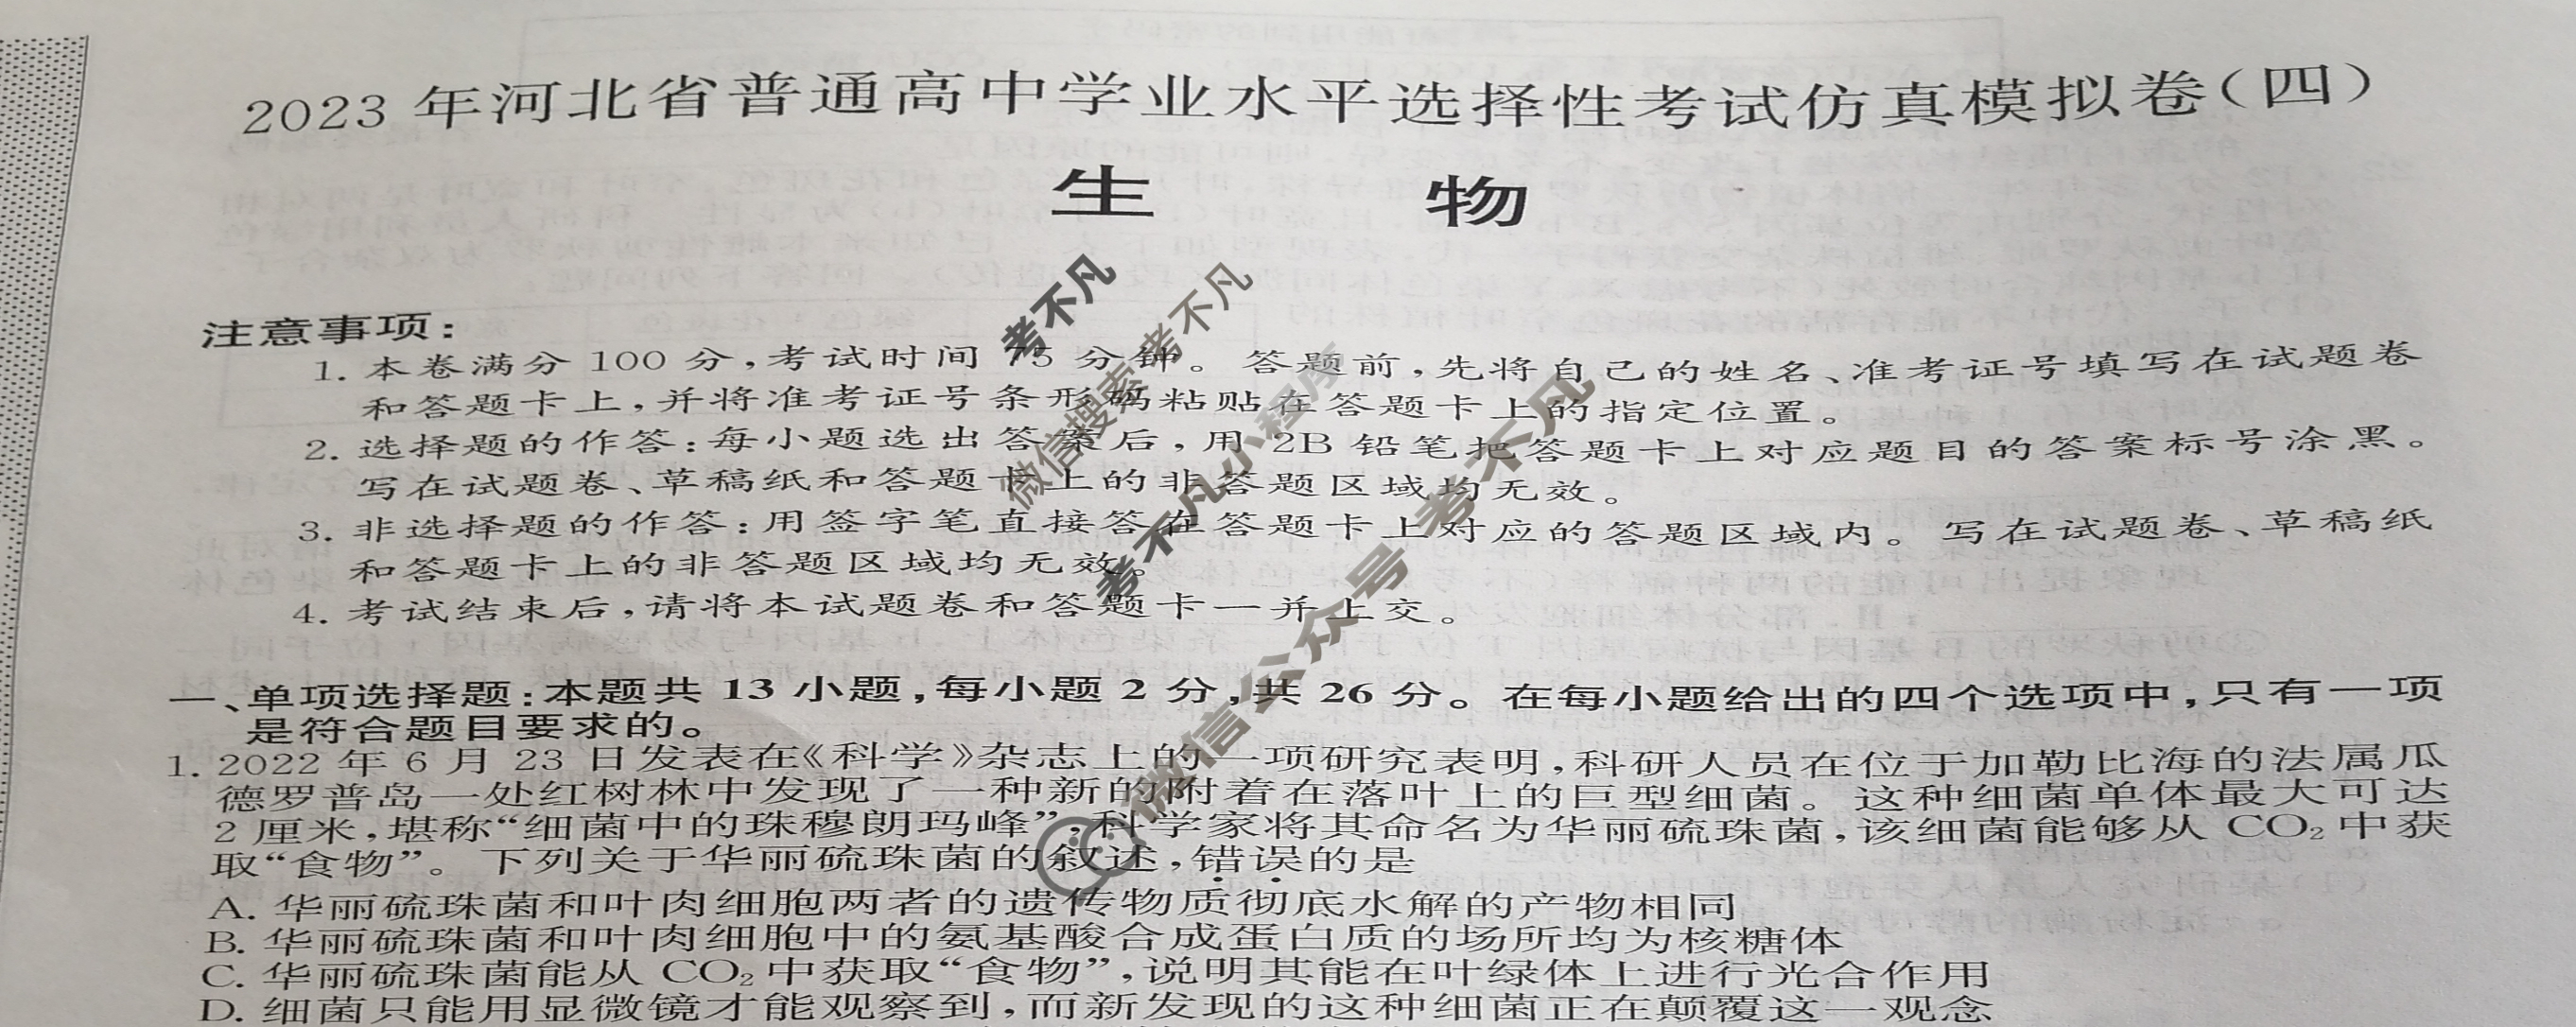 2023年河北省普通高中学业水平选择性考试仿真模拟卷(四)
生 物
注意事项:
1. 本卷满分100分,考试时间75分钟。答题前,先将自己的姓名、准考证号填写在试题卷
和答题卡上,并将准考证号条形码粘贴在答题卡上的指定位置。
2. 选择题的作答:每小题选出答案后,用2B铅笔把答题卡上对应题目的答案标号涂黑。
写在试题卷、草稿纸和答题卡上的非答题区域均无效。
3. 非选择题的作答:用签字笔直接答在答题卡上对应的答题区域内。写在试题卷、草稿纸
和答题卡上的非答题区域均无效。
4. 考试结束后,请将本试题卷和答题卡一并上交。
一、单项选择题:本题共13小题,每小题2分,共26分。在每小题给出的四个选项中,只有一项
是符合题目要求的。
1. 2022年6月23日发表在《科学》杂志上的一项研究表明,科研人员在位于加勒比海的法属瓜
德罗普岛一处红树林中发现了一种新的附着在落叶上的巨型细菌。这种细菌单体最大可达
2厘米,堪称“细菌中的珠穆朗玛峰”,科学家将其命名为华丽硫珠菌,该细菌能够从CO₂中获
取“食物”。下列关于华丽硫珠菌的叙述,错误的是
A. 华丽硫珠菌和叶肉细胞两者的遗传物质彻底水解的产物相同
B. 华丽硫珠菌和叶肉细胞中的氨基酸合成蛋白质的场所均为核糖体
C. 华丽硫珠菌能从CO₂中获取“食物”,说明其能在叶绿体上进行光合作用
D. 细菌只能用显微镜才能观察到,而新发现的这种细菌正在颠覆这一观念
考不凡
微信搜索考不凡
考不凡小程序
微信公众号 考不凡